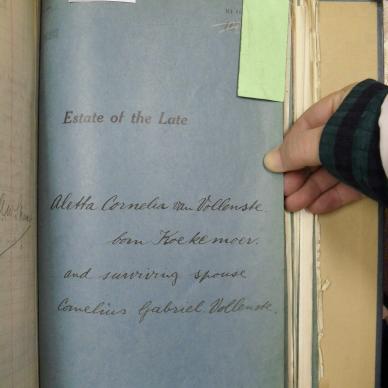 Estate of the Late
Aletta Cornelia van Vollenste
born Koekemoer.
and surviving spouse
Cornelius Gabriel Vollenste.